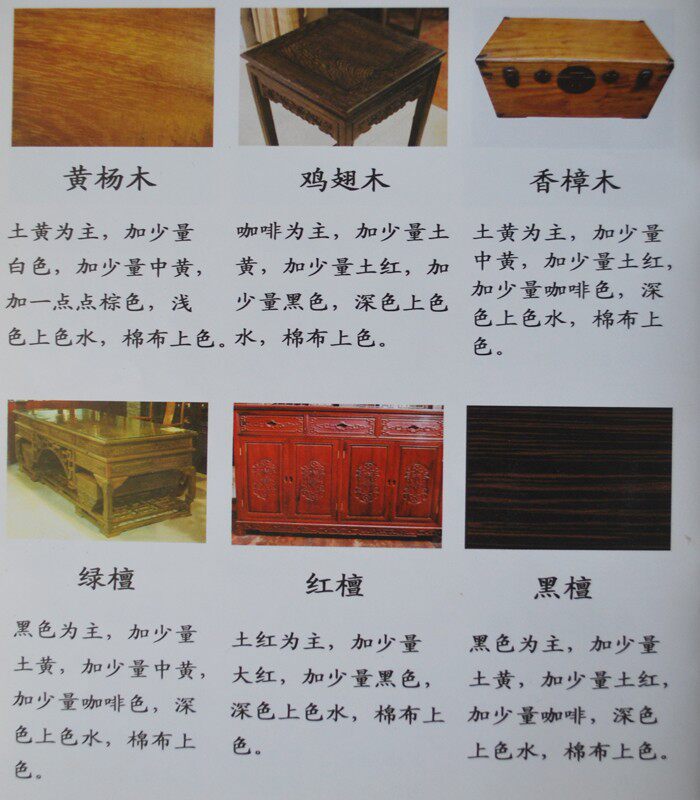 黄杨木
土黄为主，加少量
白色，加少量中黄，
加一点点棕色，浅
色上色水，棉布上色。
鸡翅木
咖啡为主，加少量土
黄，加少量土红，加
少量黑色，深色上色
水，棉布上色。
香樟木
土黄为主，加少量
中黄，加少量土红，
加少量咖啡色，深
色上色水，棉布上
色。
绿檀
黑色为主，加少量
土黄，加少量中黄，
加少量咖啡色，深
色上色水，棉布上
色。
红檀
土红为主，加少量
大红，加少量黑色，
深色上色水，棉布上
色。
黑檀
黑色为主，加少量
土黄，加少量土红，
加少量咖啡，深色
上色水，棉布上色。